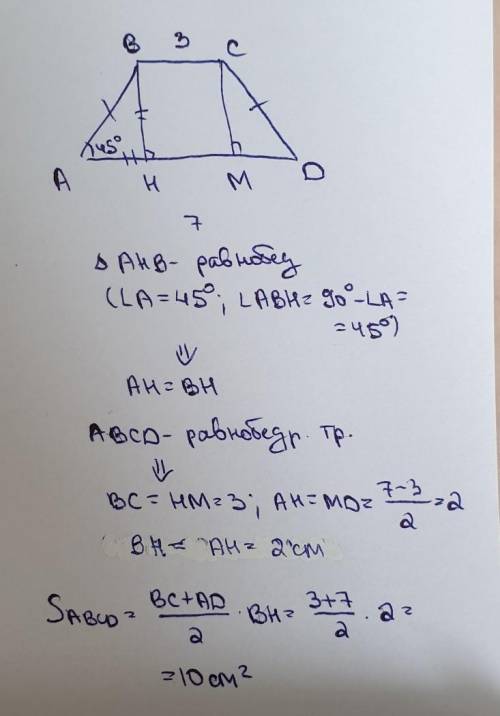 B 3 C
45°
A H M D
7
Δ AHB - равнобед
(∠A = 45°; ∠ABH = 90° - ∠A =
= 45°)
⇓
AH = BH
ABCD - равнобедр. тр.
⇓
BC = HM = 3; AH = MD = (7-3)/2 = 2
BH = AH = 2 см
S_ABCD = (BC+AD)/2 · BH = (3+7)/2 · 2 =
= 10 см²